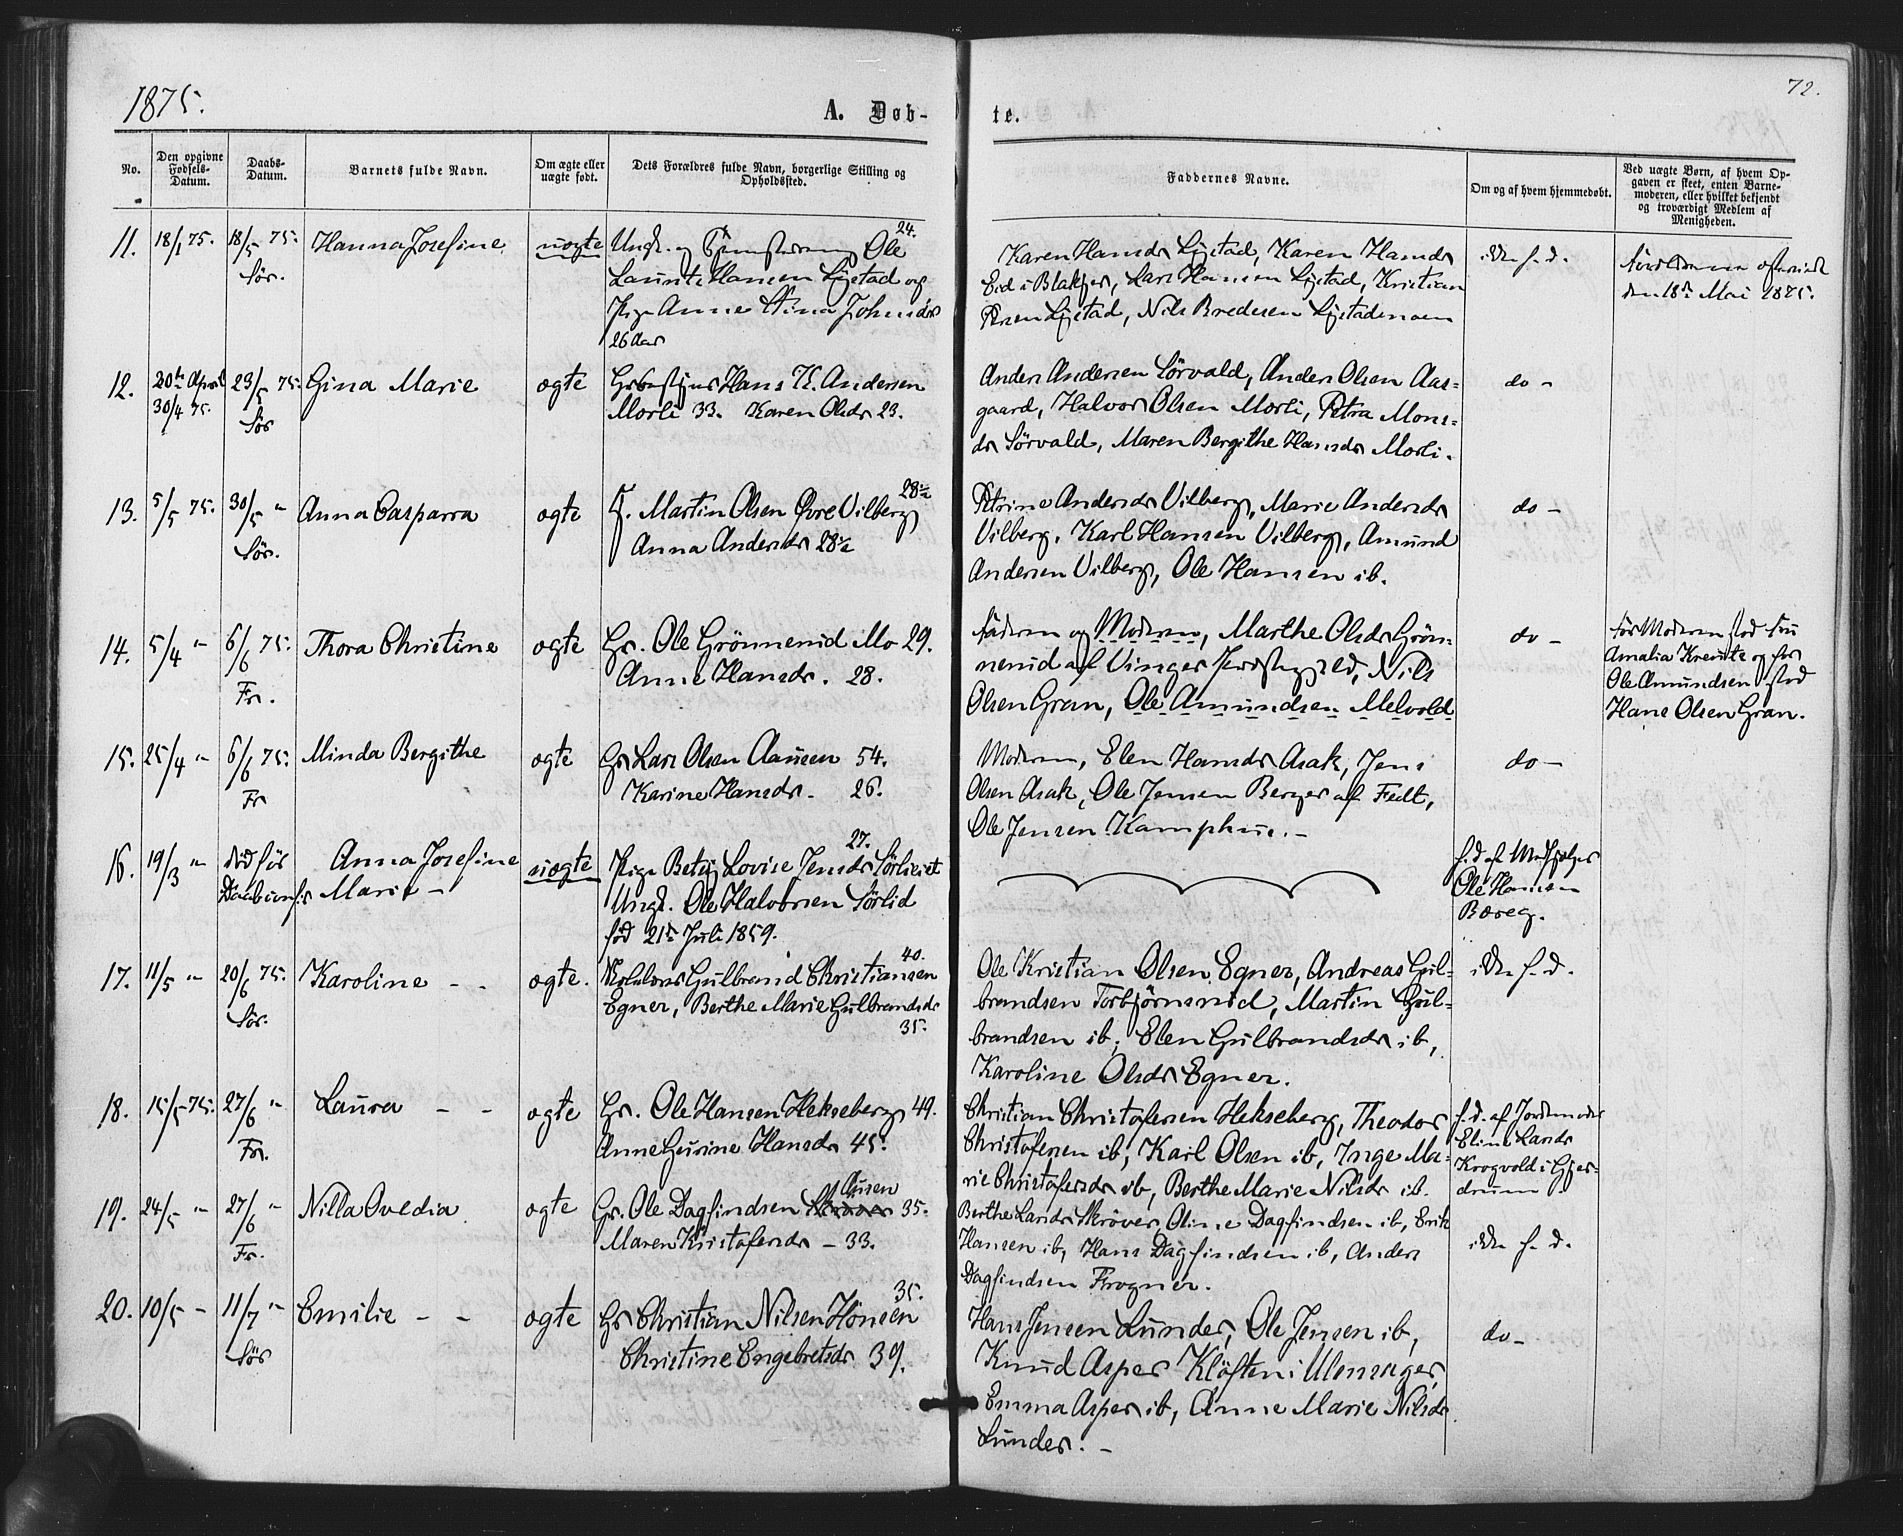 1875.
A. Døb-
te.
72.
No.
Den opgivne
Fødsels-
Datum.
Daabs-
Datum.
Barnets fulde Navn.
Om ægte eller
uægte født.
Dets Forældres fulde Navn, borgerlige Stilling og
Opholdssted.
Faddernes Navne.
Om og af hvem hjemmedøbt.
Ved uægte Børn, af hvem Op-
gaven er skeet, enten Barne-
moderen, eller hvilket bekjendt
og troværdigt Medlem af
Menigheden.
11.
18/1 75.
18/5 75.
Sör.
Hanna Josefine
uægte
24.
Ungk. og Ole
Hansen Lystad og
Pige Anne Stina Johnsdr
26 Aar
Karen Hansdr Lystad, Karen Hansdr
Eid i Blakjer, Lars Hansen Lystad, Kristian
Lystad, Nils Bredesen
ikke h. d.
den 18de Mai 1875.
12.
20de April
30/4 75.
23/5 75.
Sör
Gina Marie
ægte
Hans K. Andersen
Morli 33. Karen Olsdr 23.
Anders Andersen Sörvald, Anders Olsen Aas-
gaard, Halvor Olsen Morli, Petra Mons-
dr Sörvald, Maren Bergithe Hansdr Morli.
do -
13.
5/5 75.
30/5 "
Sör.
Anna Casparra
ægte
28 1/2
F. Martin Olsen Øvre Vilberg
Anna Andersdr 28 1/2
Petrine Andersdr Vilberg, Marie Andersdr
Vilberg, Karl Hansen Vilberg, Amund
Andersen Vilberg, Ole Hansen ib.
do -
14.
5/4 "
6/6 75.
Fr.
Thora Christine
ægte
Gr. Ole Grönnenud Mo 29.
Anne Hansdr. 28.
Faderen og Moderen, Marthe Olsdr Grön-
nenud af Vinger Præstegjeld, Nils
Olsen Gran, Ole Amundsen Melvold
do -
for Moderen stod Fru
Amalia og for
Ole Amundsen stod
Hans Olsen Gran.
15.
25/4 "
6/6 75.
Fr
Minda Bergithe
ægte
Gr Lars Olsen Aamoen 54.
Karine Hansdr. 26.
Moderen, Elen Hansdr Asak, Jens
Olsen Asak, Ole Jensen Berger af Fedt,
Ole Jensen Kamphus. -
do -
16.
19/3 "
död för
Anna Josefine
Marie -
uægte
27.
Pige Betsy Lovise Jensdr Sörlieiet
Ungk. Ole Halvorsen Sörlid
föd 21de Juli 1859.
h. d. af
Ole Hansen
17.
11/5 "
20/6 75.
Sör.
Karoline - -
ægte.
40.
Gulbrand Christiansen
Egner, Berthe Marie Gulbrandsdr
35.
Ole Kristian Olsen Egner, Andreas Gul-
brandsen Torbjörnsrud, Martin Gul-
brandsen ib, Elen Gulbrandsdr ib,
Karoline Olsdr Egner.
ikke h. d.
18.
15/5 75.
27/6 "
Fr.
Laura - -
ægte
Gr. Ole Hansen Hekseberg 49.
Anne Gurine Hansdr 45.
Christian Christofersen Hekseberg, Theodor
Christofersen ib, Karl Olsen ib, Inge Ma-
rie Christofersdr ib, Berthe Marie Nilsdr ib.
h. d. af Jordemoder
Eline Larsdr
Krogvold i Gjer-
drum.
19.
24/5 "
27/6 "
Fr.
Nilla Ovedia
ægte
Gr. Ole Dagfindsen 35.
Maren Kristofersdr - 33.
Berthe Larsdr Skröver, Oline Dagfindsen ib, Erik
Hansen ib, Hans Dagfindsen ib, Anders
Dagfindsen Frogner.
ikke h. d.
20.
10/5 -
11/7 "
Sör
Emilie - -
ægte
35.
Gr Christian Nilsen Hönsen
Christine Engebretsdr 39.
Hans Jensen Lunder, Ole Jensen ib,
Knud Asper Klöften i Ulensager,
Emma Asper ib, Anne Marie Nilsdr
Lunder. -
do -